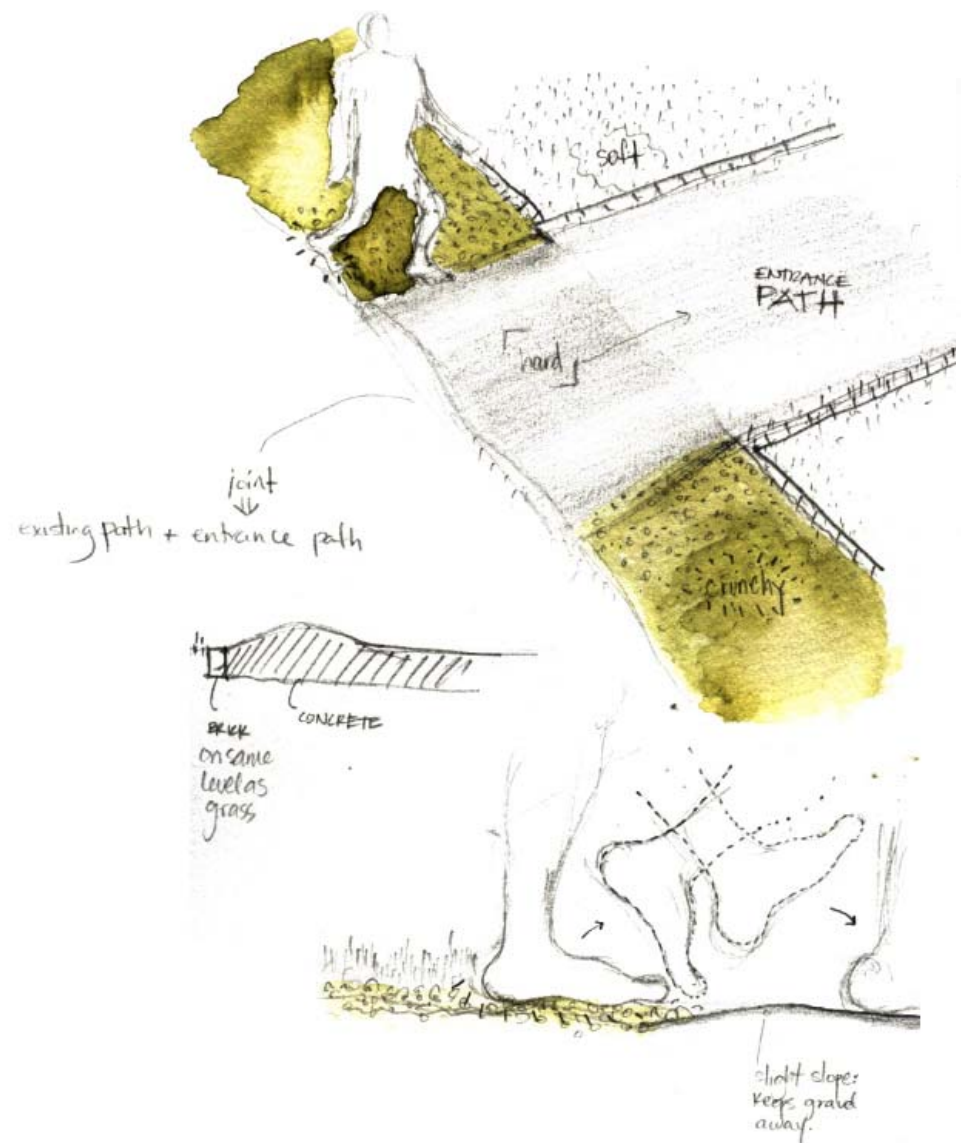 soft
ENTRANCE
PATH
hard
joint
existing path + entrance path
crunchy
BRICK
on same
level as
grass
CONCRETE
slight slope:
keeps gravel
away.